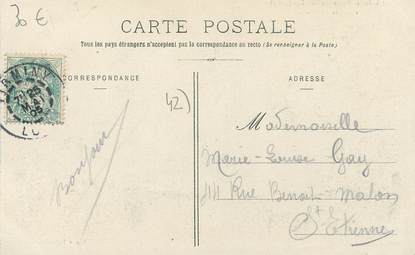 30 €
CARTE POSTALE
Tous les pays étrangers n'acceptent pas la correspondance au recto (Se renseigner à la Poste)
CORRESPONDANCE
ADRESSE
42)
Mademoiselle
Marie-Louise Gay
Rue Benoit-Malon
St Etienne
Bonjour